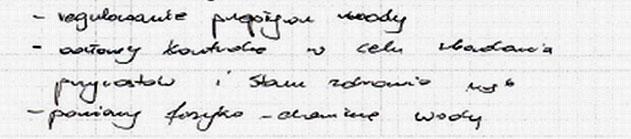 - regulowanie przepływu wody
- odłowy kontrolne w celu zbadania
przyrostów i stanu zdrowia ryb
- pomiary fizyko-chemiczne wody